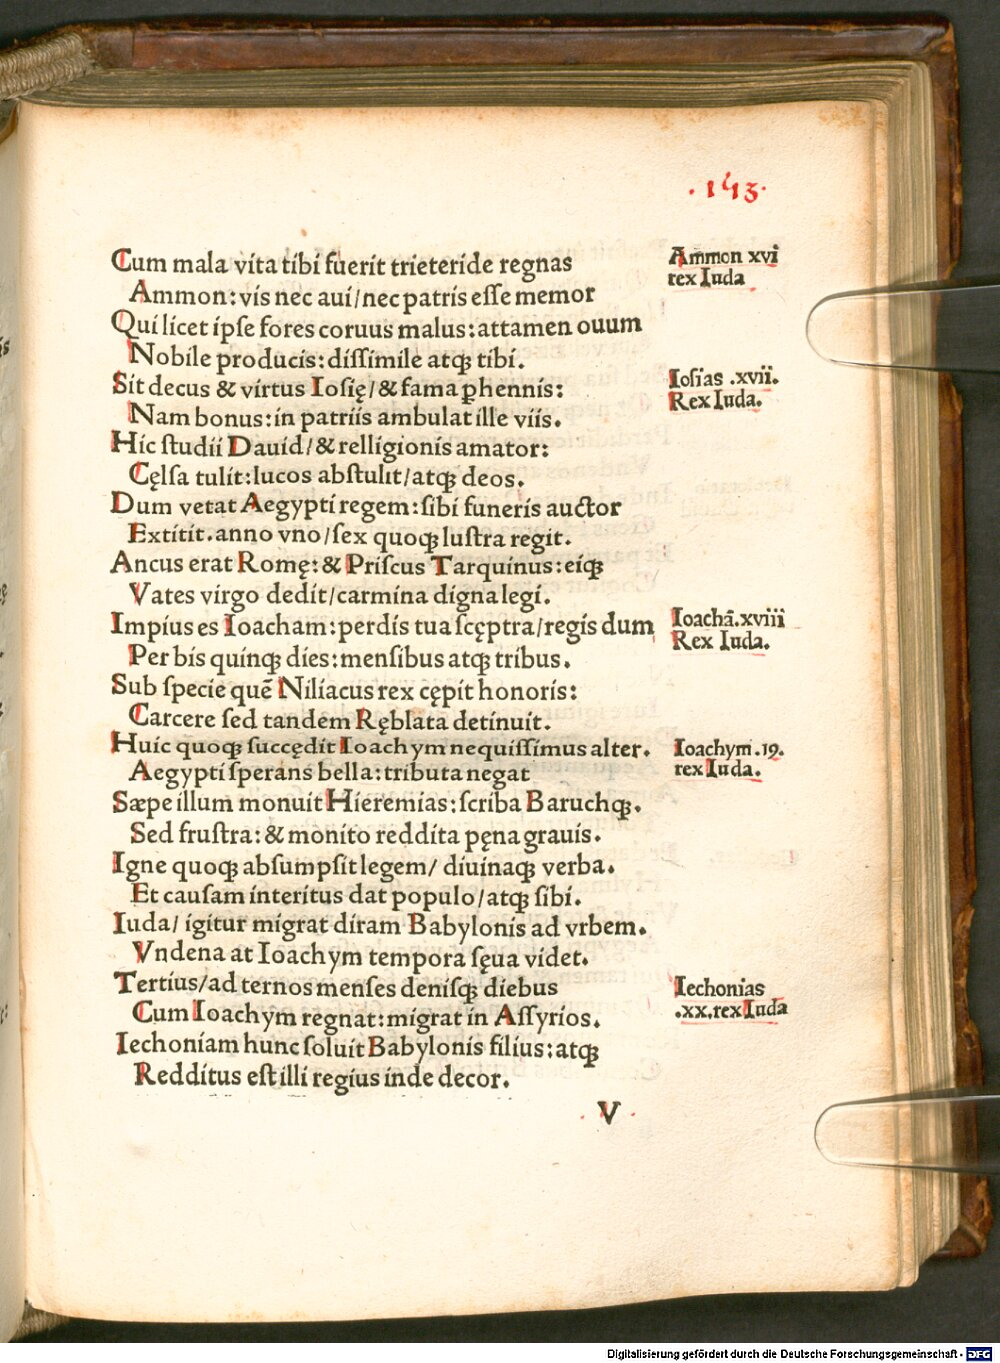 .143.
Cum mala vita tibi fuerit trieteride regnas
Ammon xvi
rex Iuda
Ammon: vis nec aui/nec patris esse memor
Qui licet ipse fores coruus malus: attamen ouum
Nobile producis: dissimile atqꝫ tibi.
Sit decus & virtus Iosię/& fama ꝑhennis:
Iosias .xvii.
Rex Iuda.
Nam bonus: in patriis ambulat ille viis.
Hic studii Dauid/& relligionis amator:
Cęlsa tulit: lucos abstulit/atqꝫ deos.
Dum vetat Aegypti regem: sibi funeris auctor
Extitit. anno vno/sex quoqꝫ lustra regit.
Ancus erat Romę: & Priscus Tarquinus: eiqꝫ
Vates virgo dedit/carmina digna legi.
Impius es Ioacham: perdis tua scęptra/regis dum
Ioachā.xviii
Rex Iuda.
Per bis quinqꝫ dies: mensibus atqꝫ tribus.
Sub specie quē Niliacus rex cępit honoris:
Carcere sed tandem Ręblata detinuit.
Huic quoqꝫ succędit Ioachym nequissimus alter.
Ioachym.19.
rex Iuda.
Aegypti sperans bella: tributa negat
Sæpe illum monuit Hieremias: scriba Baruchqꝫ.
Sed frustra: & monito reddita pęna grauis.
Igne quoqꝫ absumpsit legem/ diuinaqꝫ verba.
Et causam interitus dat populo/atqꝫ sibi.
Iuda/ igitur migrat diram Babylonis ad vrbem.
Vndena at Ioachym tempora sęua videt.
Tertius/ad ternos menses denisqꝫ diebus
Iechonias
.xx.rex Iuda
Cum Ioachym regnat: migrat in Assyrios.
Iechoniam hunc soluit Babylonis filius: atqꝫ
Redditus est illi regius inde decor.
V
Digitalisierung gefördert durch die Deutsche Forschungsgemeinschaft - DFG